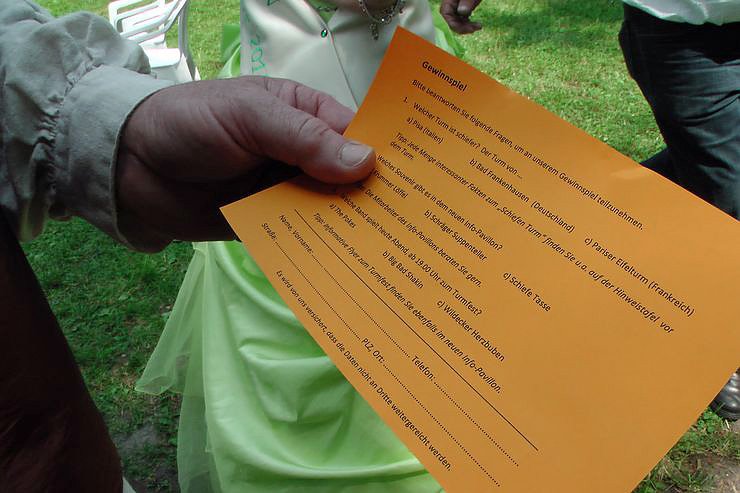 Gewinnspiel
Bitte beantworten Sie folgende Fragen, um an unserem Gewinnspiel teilzunehmen.
1. Welcher Turm ist schiefer? Der Turm von...
a) Pisa (Italien) b) Bad Frankenhausen (Deutschland) c) Pariser Eifelturm (Frankreich)
Tipp: Jede Menge interessanter Fakten zum „Schiefen Turm" finden Sie u.a. auf der Hinweistafel vor
dem Turm.
Welches Souvenir gibt es in dem neuen Info-Pavillon?
Löffel) b) Schräger Suppenteller c) Schiefe Tasse
Die Mitarbeiter des Info-Pavillons beraten Sie gern.
Welche Band spielt heute Abend, ab 19.00 Uhr zum Turmfest?
a) The Pokes b) Big Bad Shakin c) Wildecker Herzbuben
Tipp: Informative Flyer zum Turmfest finden Sie ebenfalls im neuen Info-Pavillon.
Name, Vorname: Telefon:
Straße: PLZ, Ort:
Es wird von uns versichert, dass die Daten nicht an Dritte weitergereicht werden.